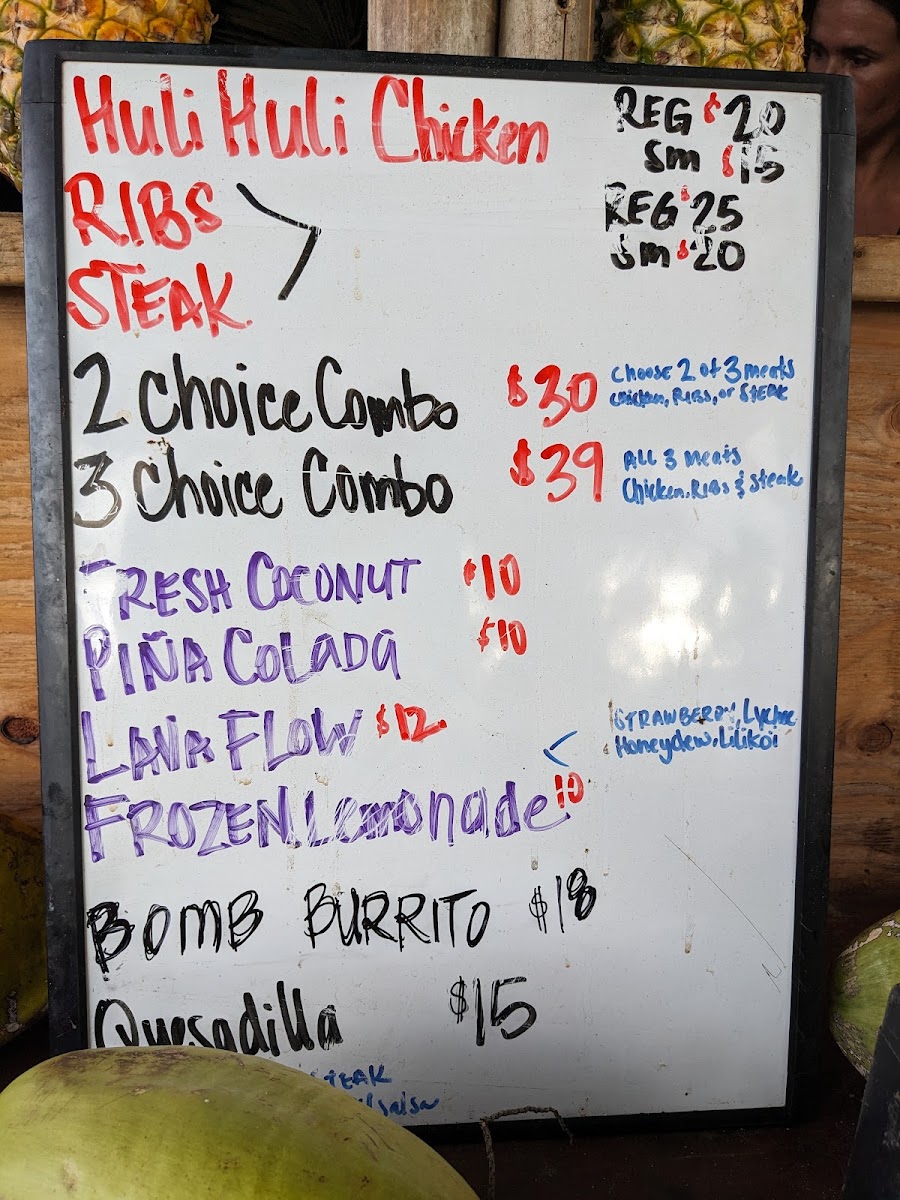 Huli Huli Chicken REG $20
Sm $15
RIBS REG $25
STEAK Sm $20
2 Choice Combo $30 Choose 2 of 3 meats
Chicken, RIBS, or STEAK
3 Choice Combo $39 ALL 3 meats
Chicken, RIBS & Steak
FRESH COCONUT $10
PIÑA COLADA $10
LAVA FLOW $12 STRAWBERRY, Lychee
Honeydew, Lilikoi
FROZEN Lemonade 10
BOMB BURRITO $18
Quesadilla $15
STEAK
salsa